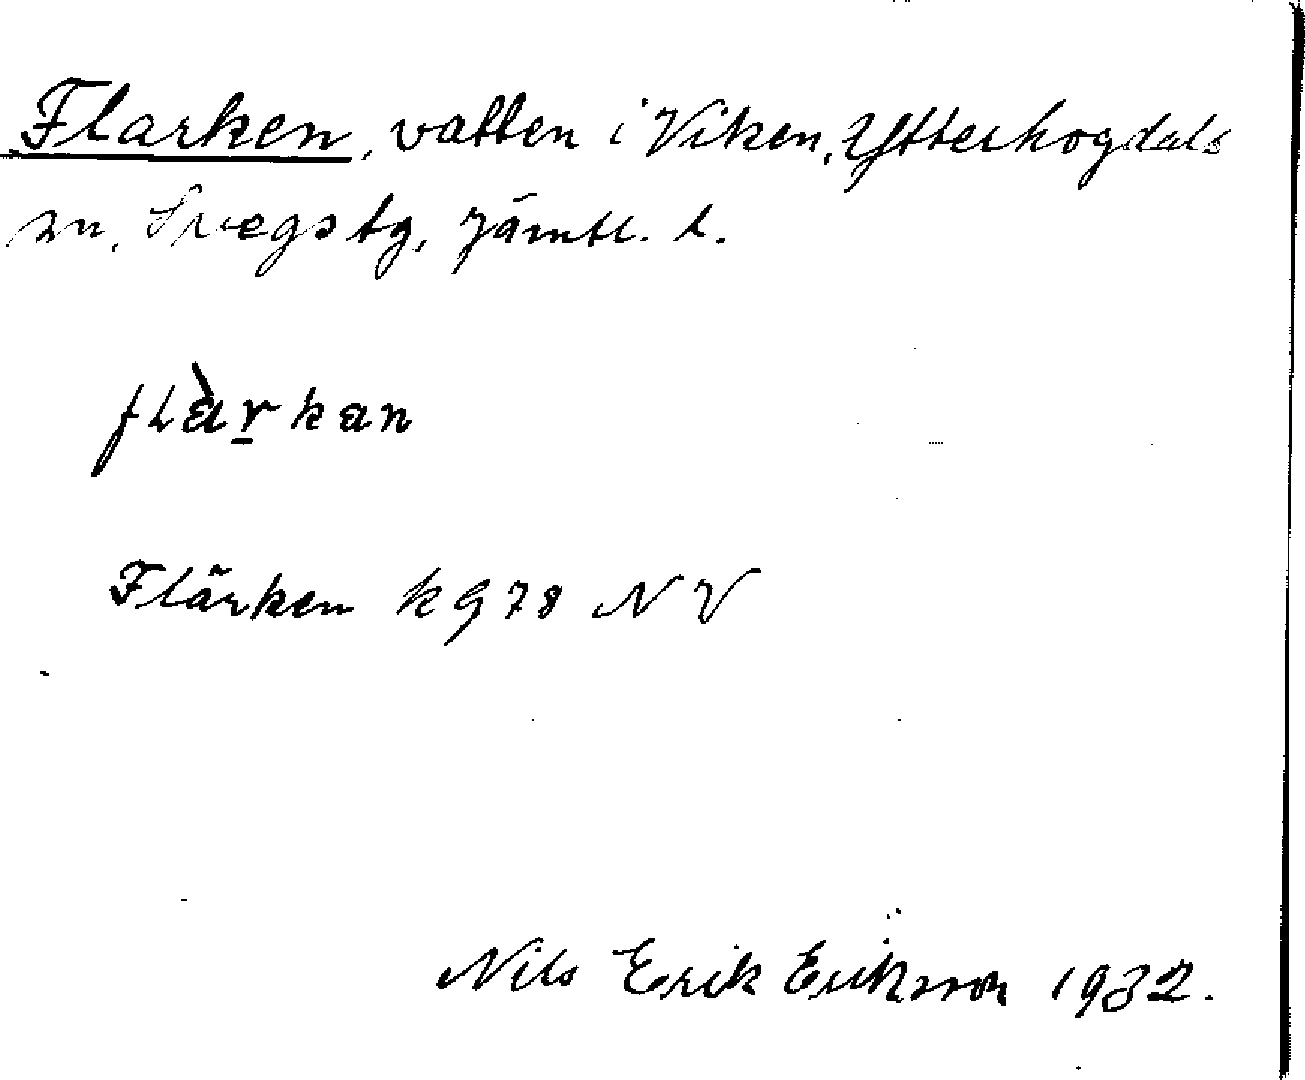 Flarken, vatten i Viken, Ytterhogdals
sn, Svegs tg, Jämtl. l.
flàr̲kan
Flärken k 978 NV
Nils Erik Eriksson 1932.